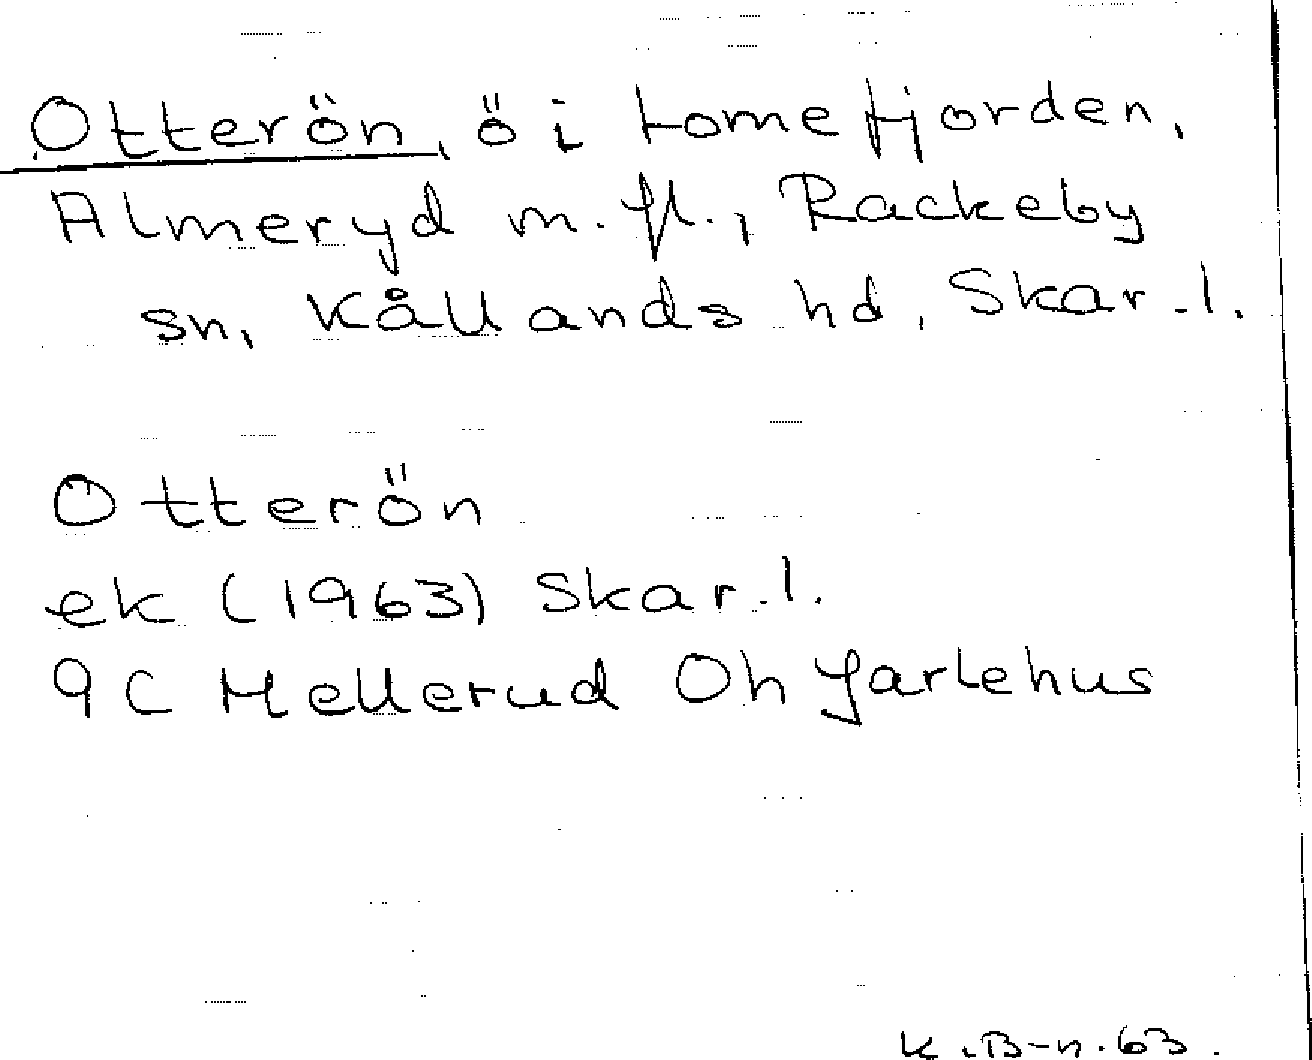 Otterön, ö i Lomefjorden,
Almeryd m.fl., Rackeby
sn, Kållands hd, Skar.l.
Otterön
ek (1963) Skar.l.
9C Mellerud Öh Jarlehus
K.B-n.63.